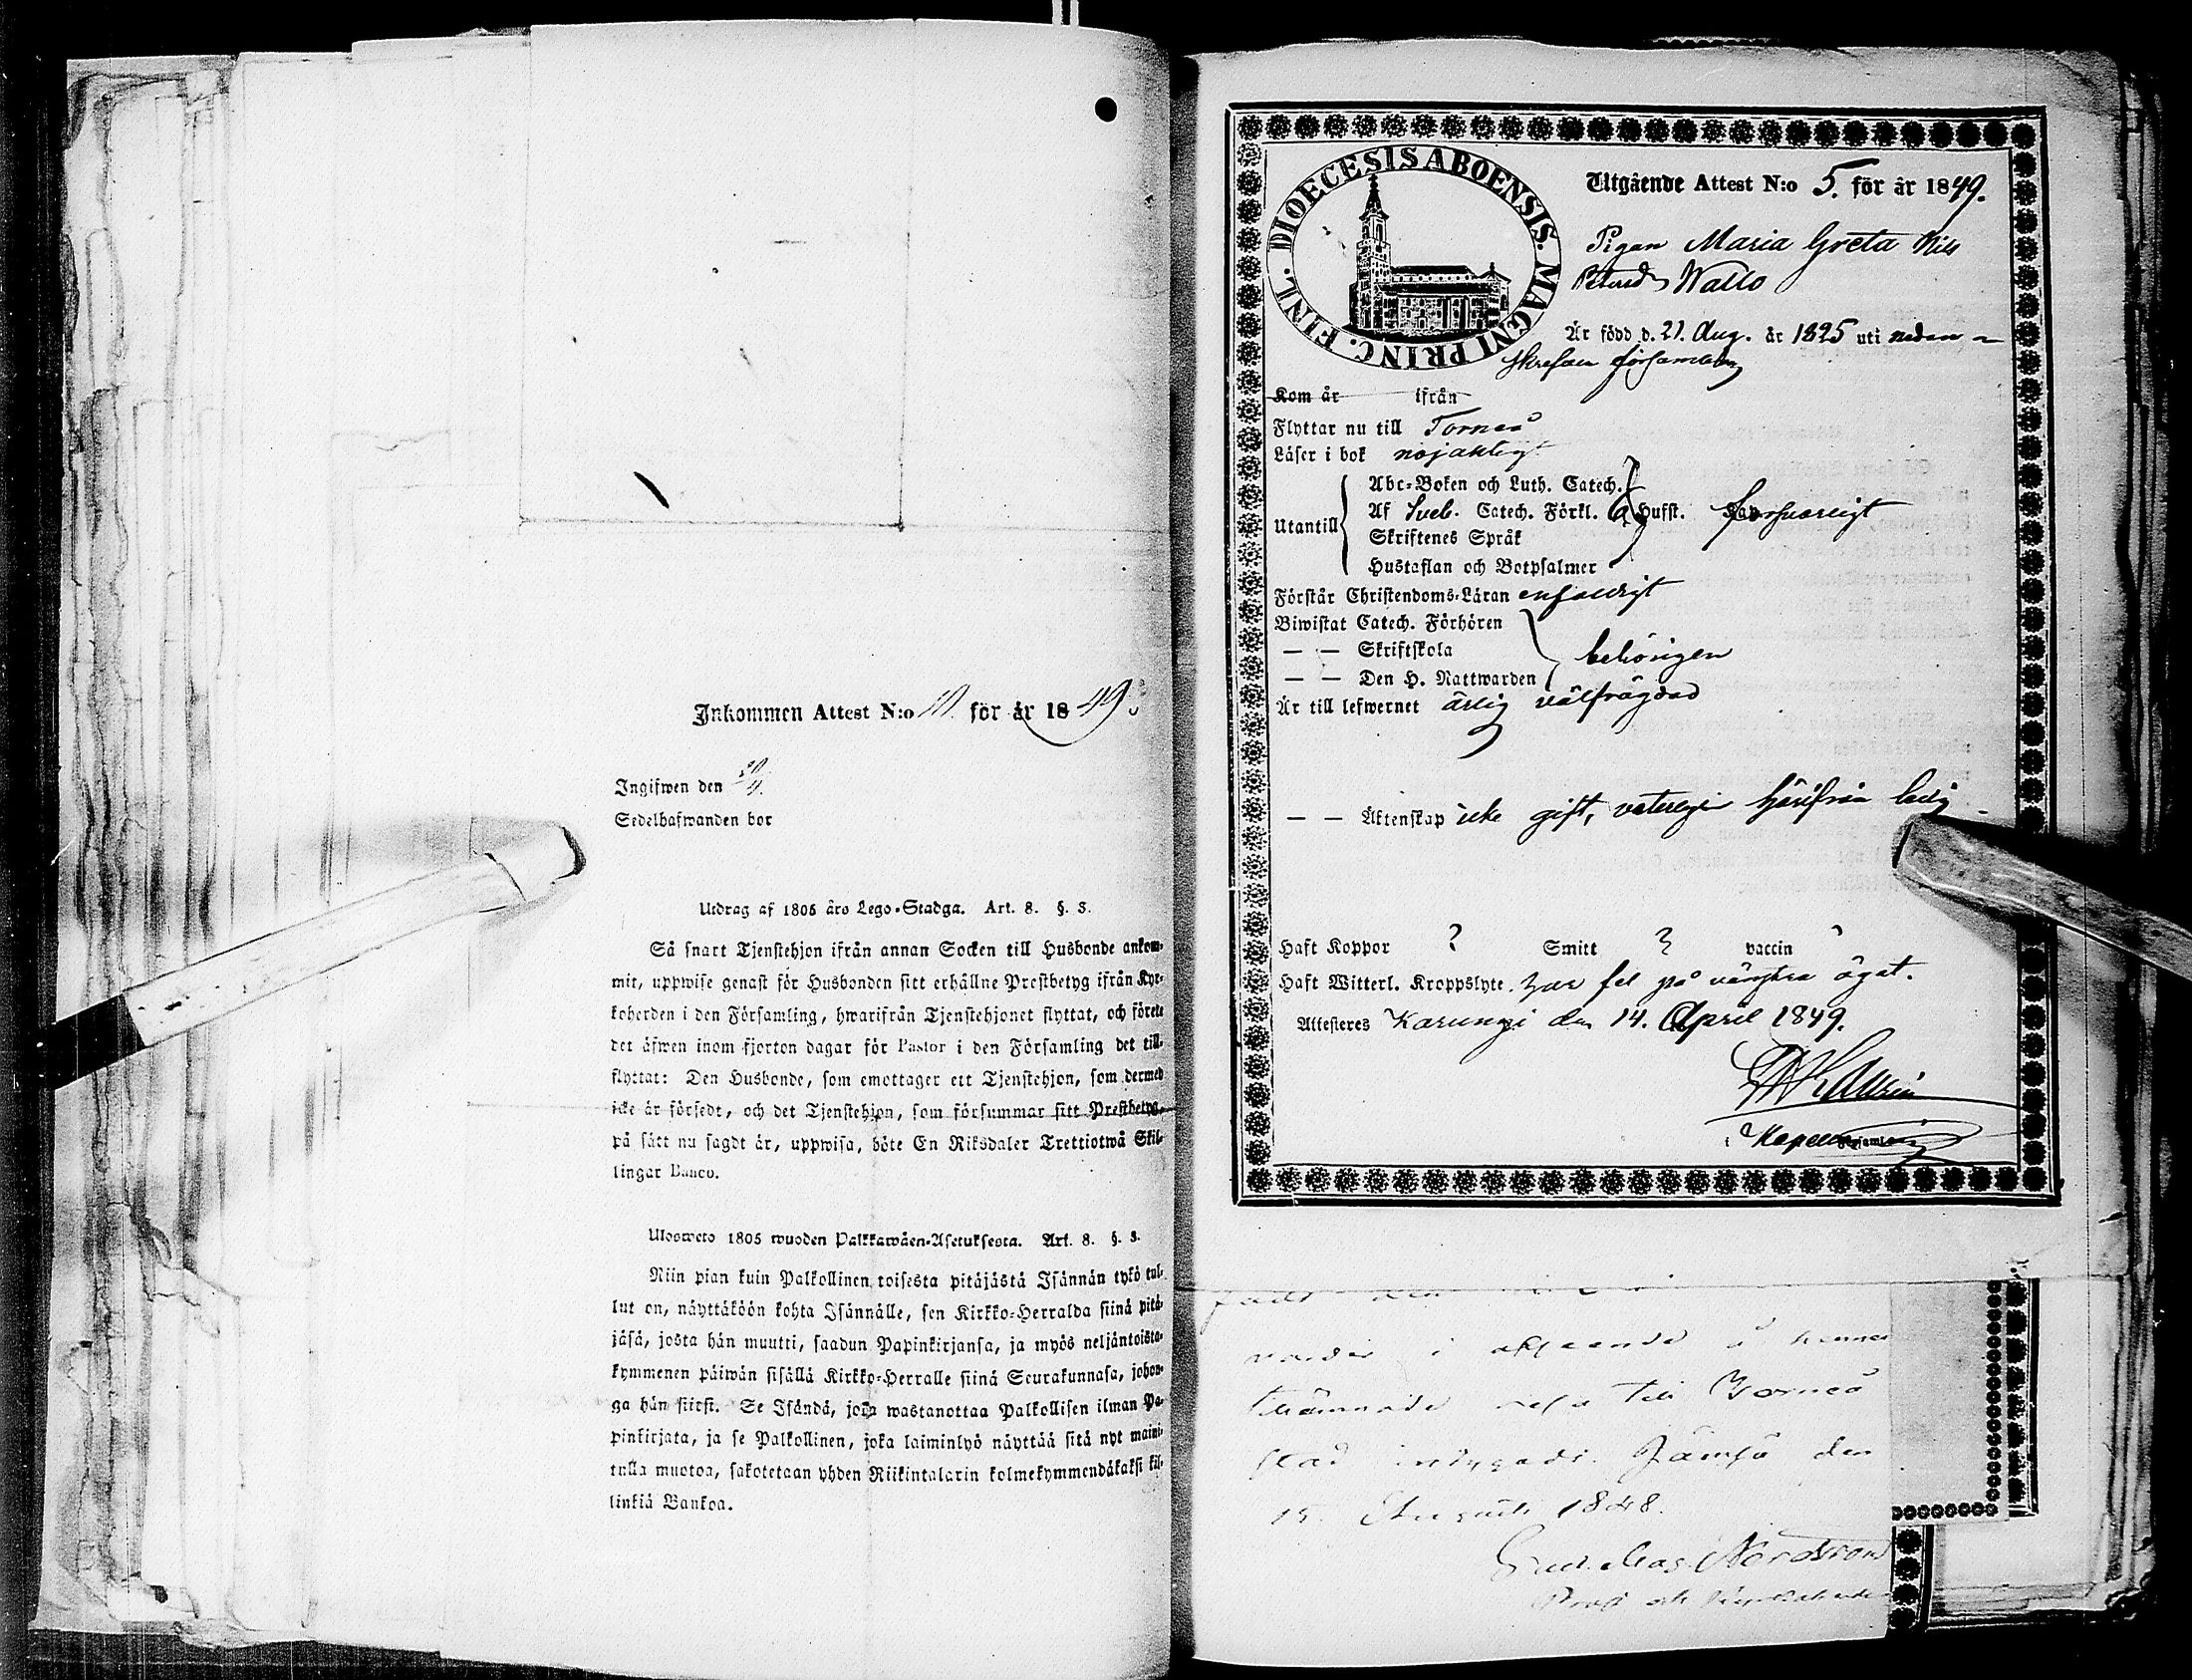 Inkommen Attest N:o för år 1849
Ingifwen den
Sedelhafwanden bor
Utdrag af 1805 års Lego-Stadga. Art. 8. §. 3.
Så snart Tjenstehjon ifrån annan Socken till Husbonde ankom-
mit, uppwise genast för Husbonden sitt erhållne Prestbetyg ifrån Kyr-
koherden i den Församling, hwarifrån Tjenstehjonet flyttat, och förete
det äfwen inom fjorton dagar för Pastor i den Församling det till-
flyttat: Den Husbonde, som emottager ett Tjenstehjon, som dermed
icke är försedt, och det Tjenstehjon, som försummar sitt Prestbetyg,
på sätt nu sagdt är, uppwisa, böte En Riksdaler Trettiotwå Skil-
lingar Banco.
Ulosweto 1805 wuoden Palkkawäen-Asetuksesta. Art. 8. §. 3.
Niin pian kuin Palkollinen toisesta pitäjästä Isännän tykö tul-
lut on, näyttäköön kohta Isännälle, sen Kirkko-Herralda siinä pitä-
jäsä, josta hän muutti, saadun Papinkirjansa, ja myös neljäntoista-
kymmenen päiwän sisällä Kirkko-Herralle siinä Seurakunnasa, johon-
ga hän siirst. Se Isändä, joka wastanottaa Palkollisen ilman Pa-
pinkirjata, ja se Palkollinen, joka laiminlyö näyttää sitä nyt maini-
tulla muotoa, sakotetaan yhden Riikintalarin kolmekymmendäkaksi kil-
linkiä Bankoa.
DIOECESIS ABOENSIS. MAGNI PRINC. FINL.
Utgående Attest N:o 5. för år 1849.
Pigan Maria Greta Nils
Petersd. Wallo
Är född d. 21. Aug. år 1825 uti nedan-
skrefne församling
Kom år ifrån
Flyttar nu till Torneå
Läser i bok nöjaktigt
Utantill
Abc-Boken och Luth. Catech.
Af Sveb. Catech. Förkl. 6 Hufst. försvarligt
Skriftenes Språk
Hustaflan och Botpsalmer
Förstår Christendoms-Läran enfaldigt
Biwistat Catech. Förhören
— — Skriftskola behörigen
— — Den H. Nattwarden
Är till lefwernet ärlig välfrägdad
— — Äktenskap icke gift, veterligen härifrån ledig
Haft Koppor ? Smitt ? vaccin ?
Haft Witterl. Kroppslyte har fel på vänstra ögat.
Attesteres Karungi den 14. April 1849.
i Kapell
till Torneå
stad Jämsä den
15. Augusti 1848.
Nordström